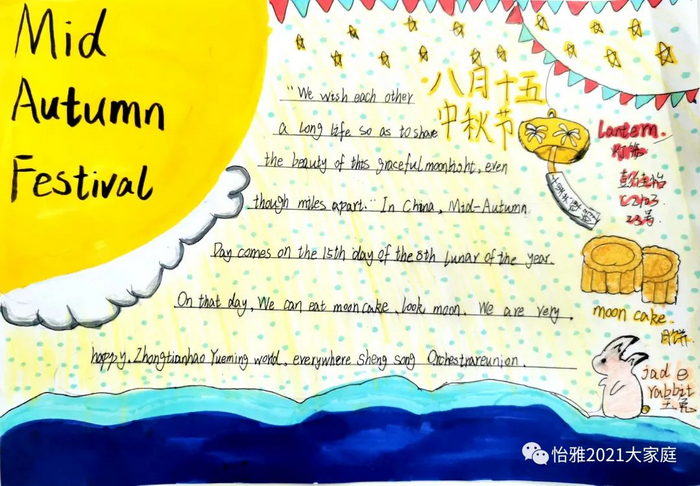 Mid
Autumn
Festival
八月十五
中秋节
"We wish each other
a long life so as to share
the beauty of this graceful moonlight, even
though miles apart." In China, Mid-Autumn
Day comes on the 15th day of the 8th lunar of the year.
On that day, We can eat moon cake, look moon. We are very
happy. Zhongtianhao Yueming world, everywhere sheng song Orchestrareunion.
Lantern.
灯笼
23号
moon cake
月饼
jade
rabbit
玉兔
怡雅2021大家庭